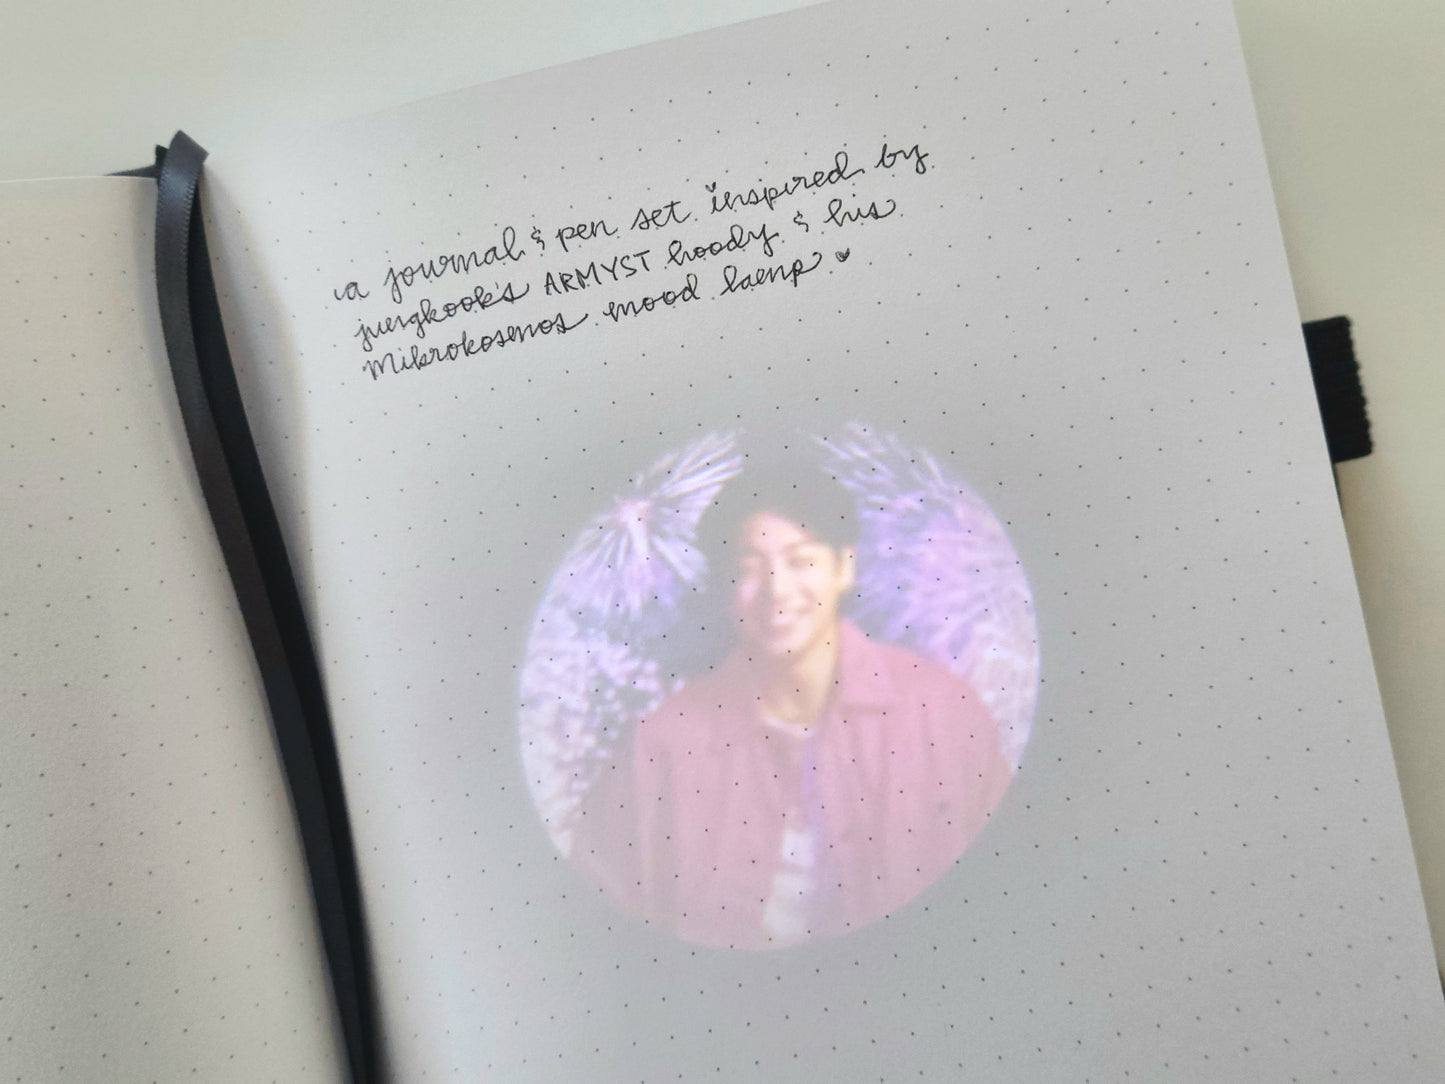 a journal & pen set inspired by
jungkook's ARMYST hoody & his
Mikrokosmos mood lamp